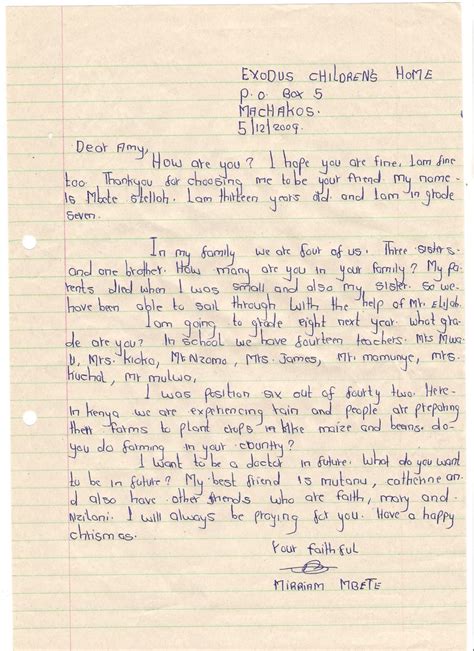 EXODUS CHILDREN'S HOME
P.O BOX 5
MACHAKOS.
5/12/2009.
Dear Amy,
How are you? I hope you are fine, I am fine
too. Thankyou for choosing me to be your friend. My name
is Mbete stellah. I am thirteen years old. and I am in grade
seven.
In my family we are four of us. Three sisters
and one brother. How many are you in your family? My pa
rents died when I was small and also my sister. So we
have been able to sail through with the help of Mr. Elijah.
I am going to grade eight next year. What gra-
de are you? In school we have fourteen teachers. Mrs Mwa-
u, Mrs. Kioko, Mr. Nzomo, Mrs. James, Mr. mamunye, mrs.
Kuchal, mr mulwa,
I was position six out of fourty two. Here-
in Kenya we are experiencing rain and people are preparing
their farms to plant crops in like maize and beans. do-
you do farming in your country?
I want to be a doctor in future. What do you want
to be in future? My best friend is mutanu, catherine an-
d also have other friends who are faith, mary and-
Nzilani. I will always be praying for you. Have a happy
chrismas.
Your faithful
MIRRIAM MBETE